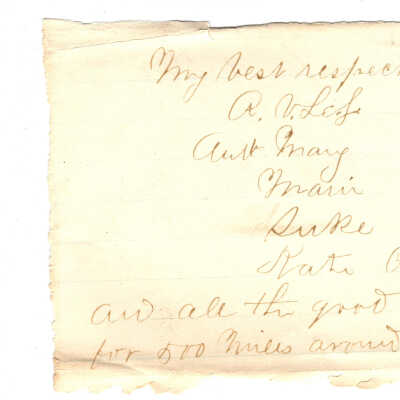 My best respec
R. V. Le
Aunt Mary
Marie
Suke
Kate
and all the good
for 500 Miles around